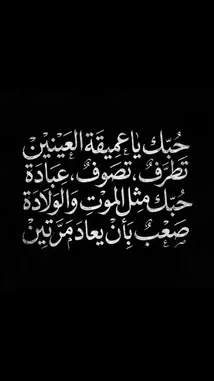 حُبّك يا عميقة العَينَينْ
تَطرّفٌ، تَصَوفٌ، عِبَادَة
حُبّك مِثل الموْتِ وَالوَلَادَة
صَعْبٌ بِأنْ يعادَ مَرّتِينْ